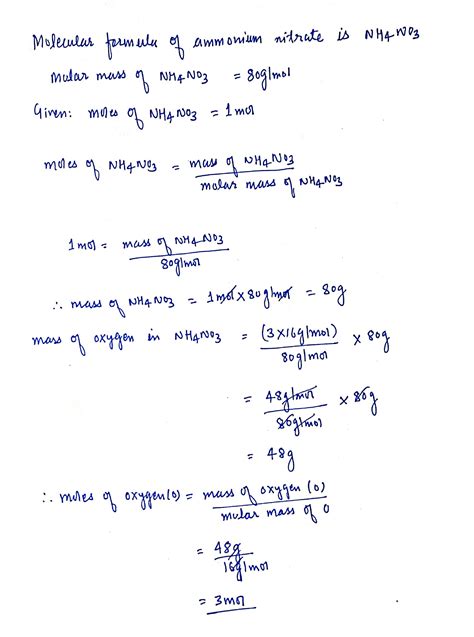 Molecular formula of ammonium nitrate is NH4NO3
molar mass of NH4NO3 = 80g/mol
Given: moles of NH4NO3 = 1mol
moles of NH4NO3 = mass of NH4NO3
molar mass of NH4NO3
1mol = mass of NH4NO3
80g/mol
∴ mass of NH4NO3 = 1mol×80g/mol = 80g
mass of oxygen in NH4NO3 = (3×16g/mol) × 80g
80g/mol
= 48g/mol × 80g
80g/mol
= 48g
∴ moles of oxygen(O) = mass of oxygen (O)
molar mass of O
= 48g
16g/mol
= 3mol